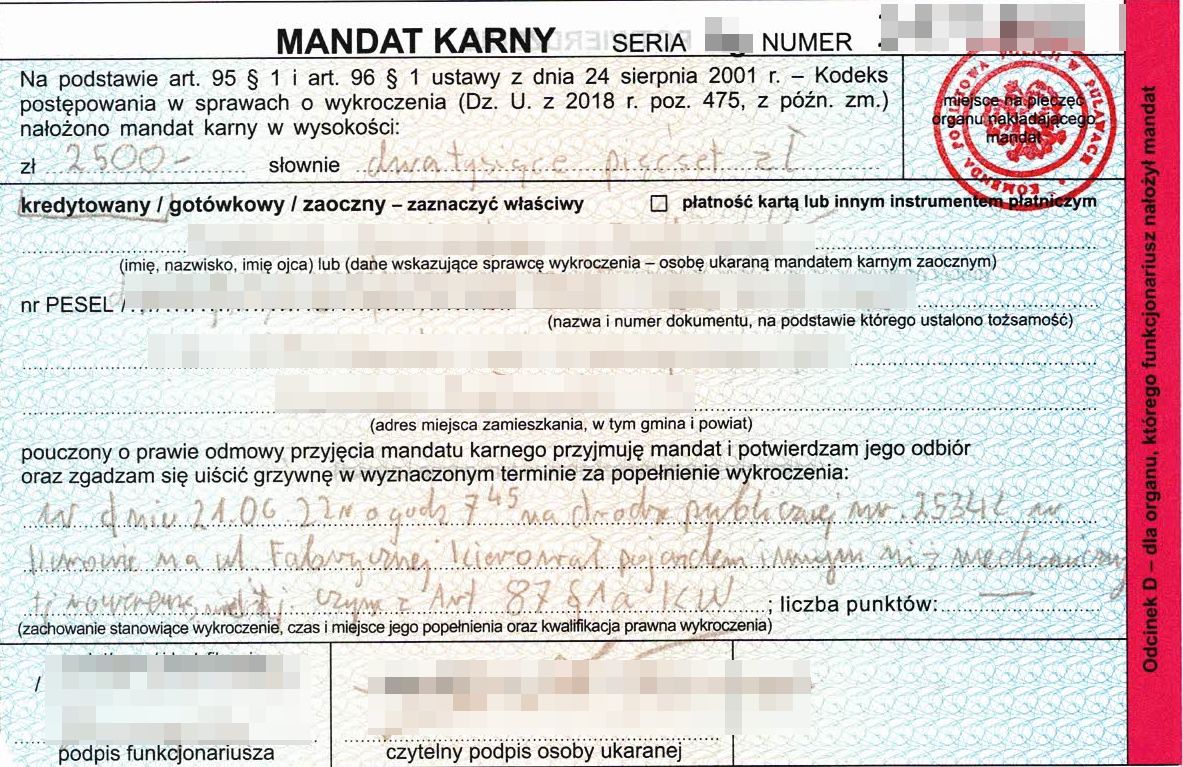 MANDAT KARNY SERIA NUMER
Na podstawie art. 95 § 1 i art. 96 § 1 ustawy z dnia 24 sierpnia 2001 r. – Kodeks
postępowania w sprawach o wykroczenia (Dz. U. z 2018 r. poz. 475, z późn. zm.)
nałożono mandat karny w wysokości:
zł 2500- słownie dwa tysiące pięćset zł
miejsce na pieczęć
organu nakładającego
mandat
KOMENDA POWIATOWA POLICJI W PUŁAWACH
kredytowany / gotówkowy / zaoczny – zaznaczyć właściwy
płatność kartą lub innym instrumentem płatniczym
(imię, nazwisko, imię ojca) lub (dane wskazujące sprawcę wykroczenia – osobę ukaraną mandatem karnym zaocznym)
nr PESEL /
(nazwa i numer dokumentu, na podstawie którego ustalono tożsamość)
(adres miejsca zamieszkania, w tym gmina i powiat)
pouczony o prawie odmowy przyjęcia mandatu karnego przyjmuję mandat i potwierdzam jego odbiór
oraz zgadzam się uiścić grzywnę w wyznaczonym terminie za popełnienie wykroczenia:
W dniu 21.0 .22r o godz 7 45 na drodze publicznej nr 2534L w
na ul Fabrycznej kierował pojazdem innym niż mechaniczny
tj rowerem czym z 87 § 1a KW ; liczba punktów: —
(zachowanie stanowiące wykroczenie, czas i miejsce jego popełnienia oraz kwalifikacja prawna wykroczenia)
podpis funkcjonariusza
czytelny podpis osoby ukaranej
Odcinek D – dla organu, którego funkcjonariusz nałożył mandat